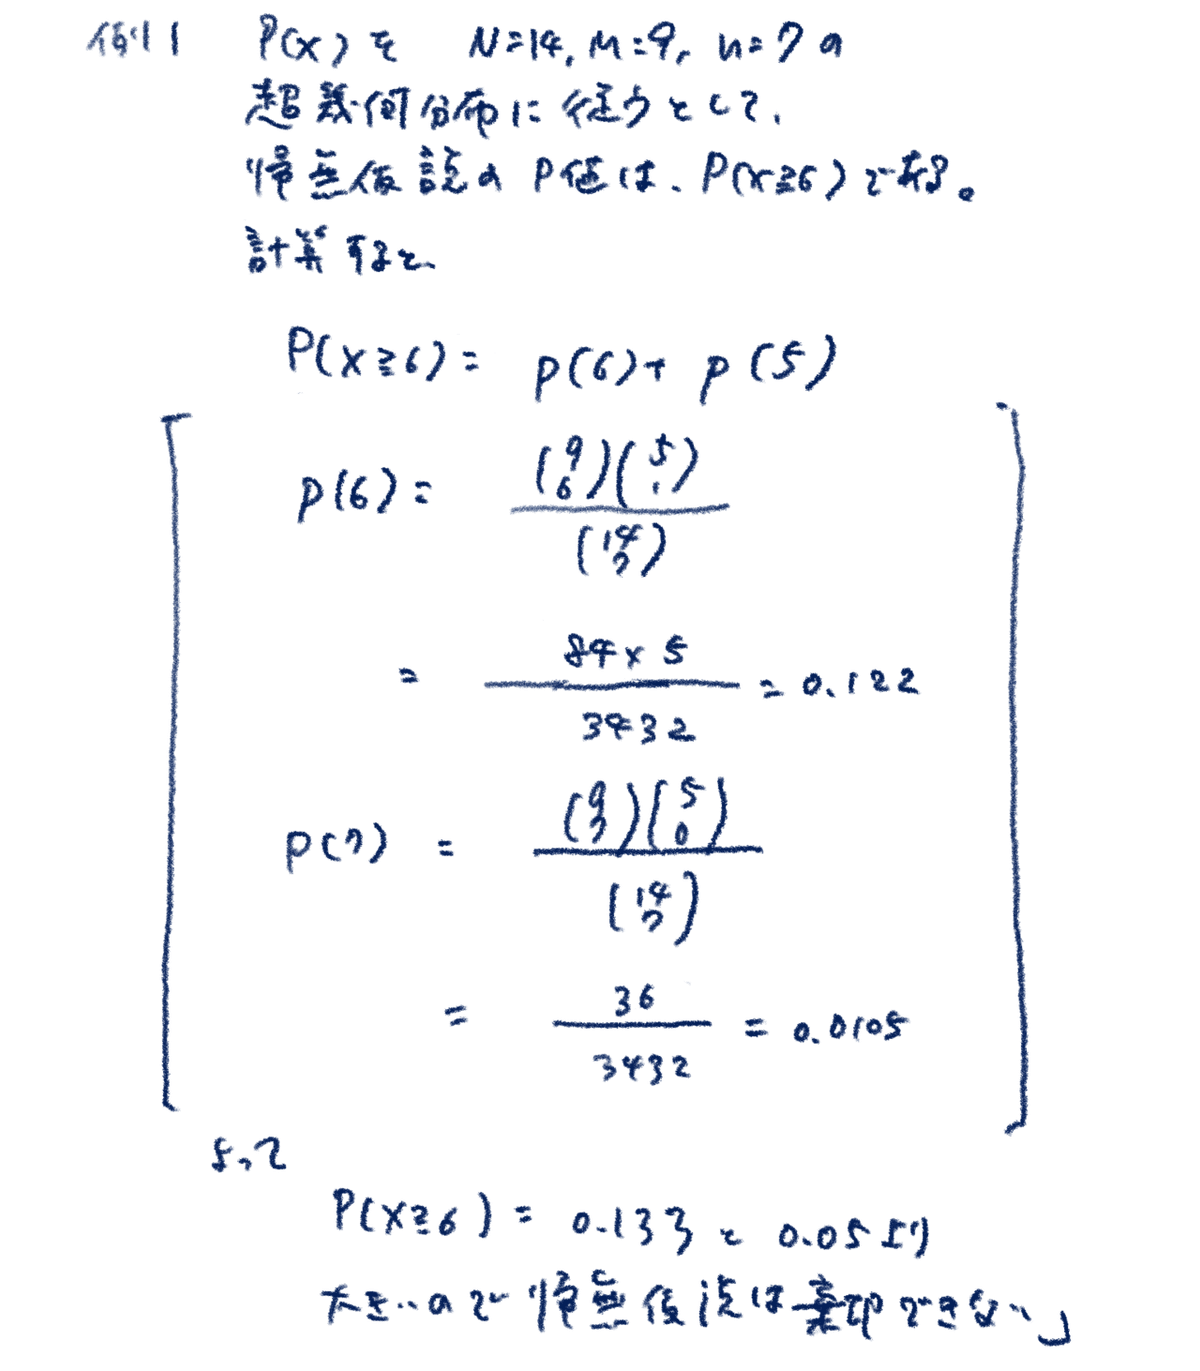 例11 P(x)を N=14, M=9, n=7の
超幾何分布に従うとして、
帰無仮説のP値は、P(x≧6)である。
計算すると
P(x≧6) = p(6)+ p(5)
p(6) = (9 6)(5 1) / (14 7)
= 84×5 / 3432 = 0.122
p(7) = (9 7)(5 0) / (14 7)
= 36 / 3432 = 0.0105
よって
P(x≧6) = 0.133と 0.05より
大きいので帰無仮説は棄却できない」